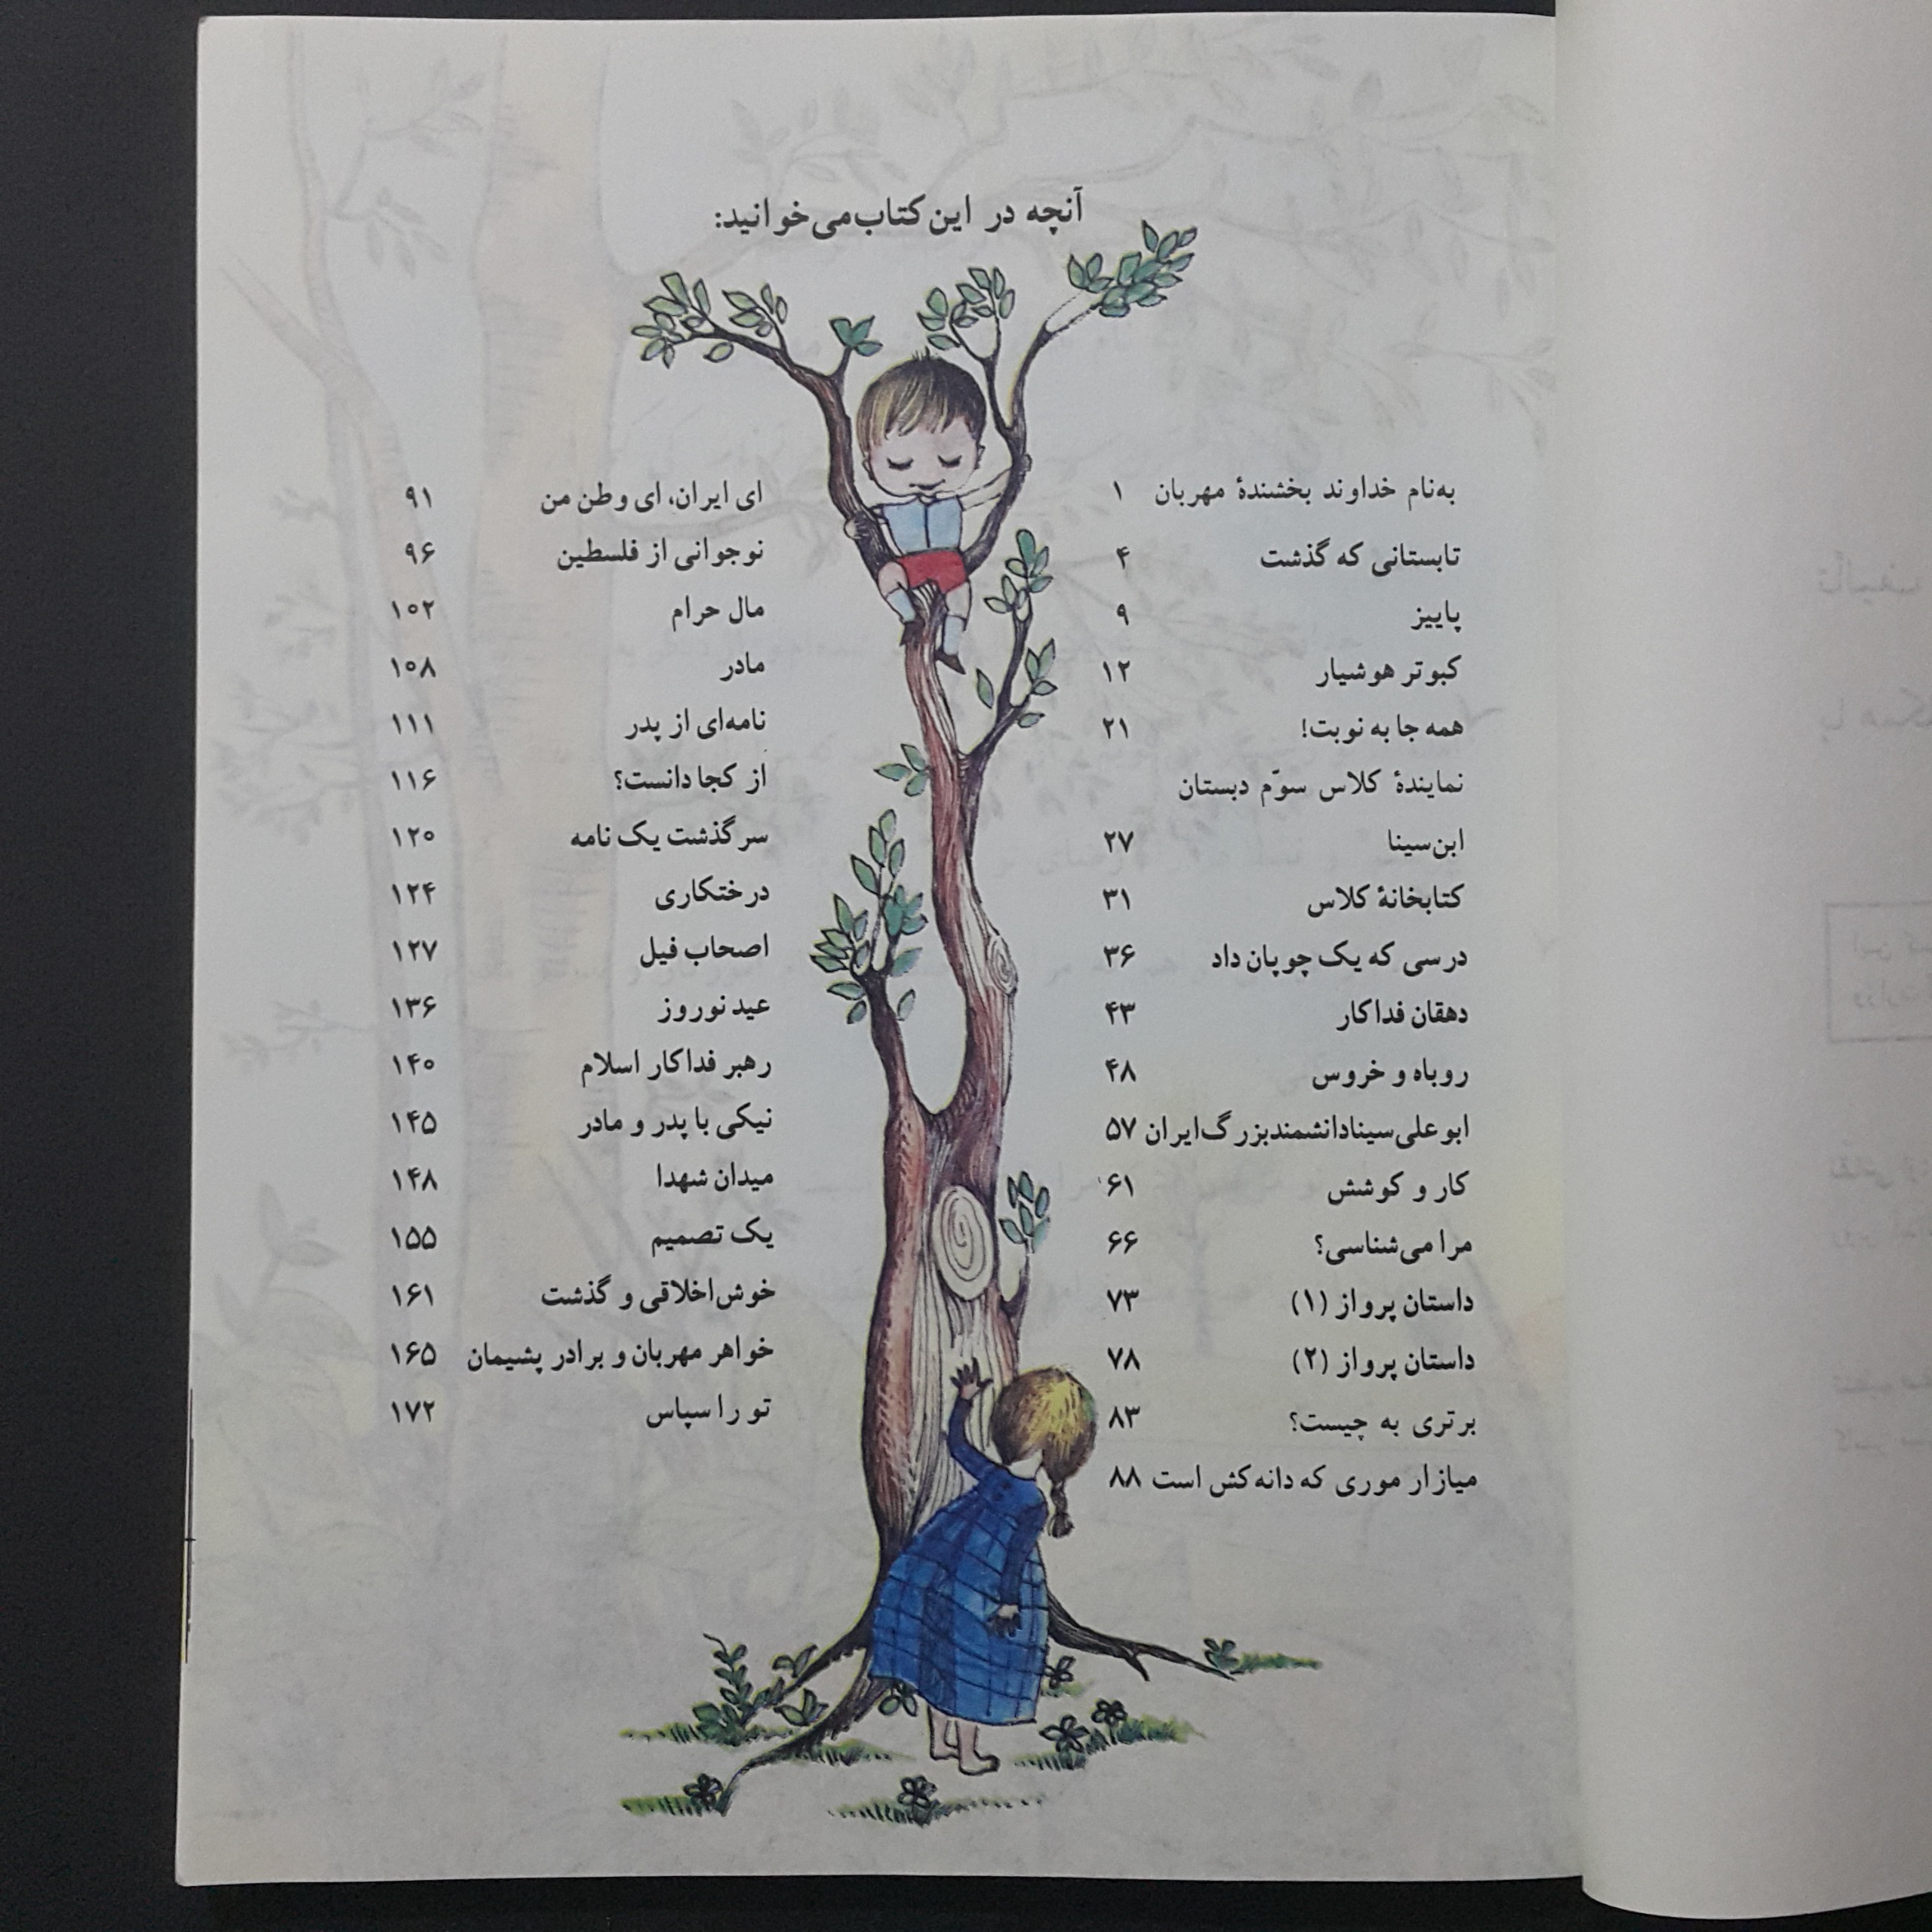 آنچه در این کتاب می‌خوانید:
به‌نام خداوند بخشندهٔ مهربان ۱
تابستانی که گذشت ۴
پاییز ۹
کبوتر هوشیار ۱۲
همه جا به نوبت! ۲۱
نمایندهٔ کلاس سوّم دبستان
ابن‌سینا ۲۷
کتابخانهٔ کلاس ۳۱
درسی که یک چوپان داد ۳۶
دهقان فداکار ۴۳
روباه و خروس ۴۸
ابوعلی‌سینا دانشمند بزرگ ایران ۵۷
کار و کوشش ۶۱
مرا می‌شناسی؟ ۶۶
داستان پرواز (۱) ۷۳
داستان پرواز (۲) ۷۸
برتری به چیست؟ ۸۳
میازار موری که دانه‌کش است ۸۸
ای ایران، ای وطن من ۹۱
نوجوانی از فلسطین ۹۶
مال حرام ۱۰۲
مادر ۱۰۸
نامه‌ای از پدر ۱۱۱
از کجا دانست؟ ۱۱۶
سرگذشت یک نامه ۱۲۰
درختکاری ۱۲۴
اصحاب فیل ۱۲۷
عید نوروز ۱۳۶
رهبر فداکار اسلام ۱۴۰
نیکی با پدر و مادر ۱۴۵
میدان شهدا ۱۴۸
یک تصمیم ۱۵۵
خوش‌اخلاقی و گذشت ۱۶۱
خواهر مهربان و برادر پشیمان ۱۶۵
تو را سپاس ۱۷۲